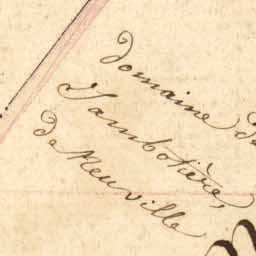 domaine de
Jambotière,
de Neuville